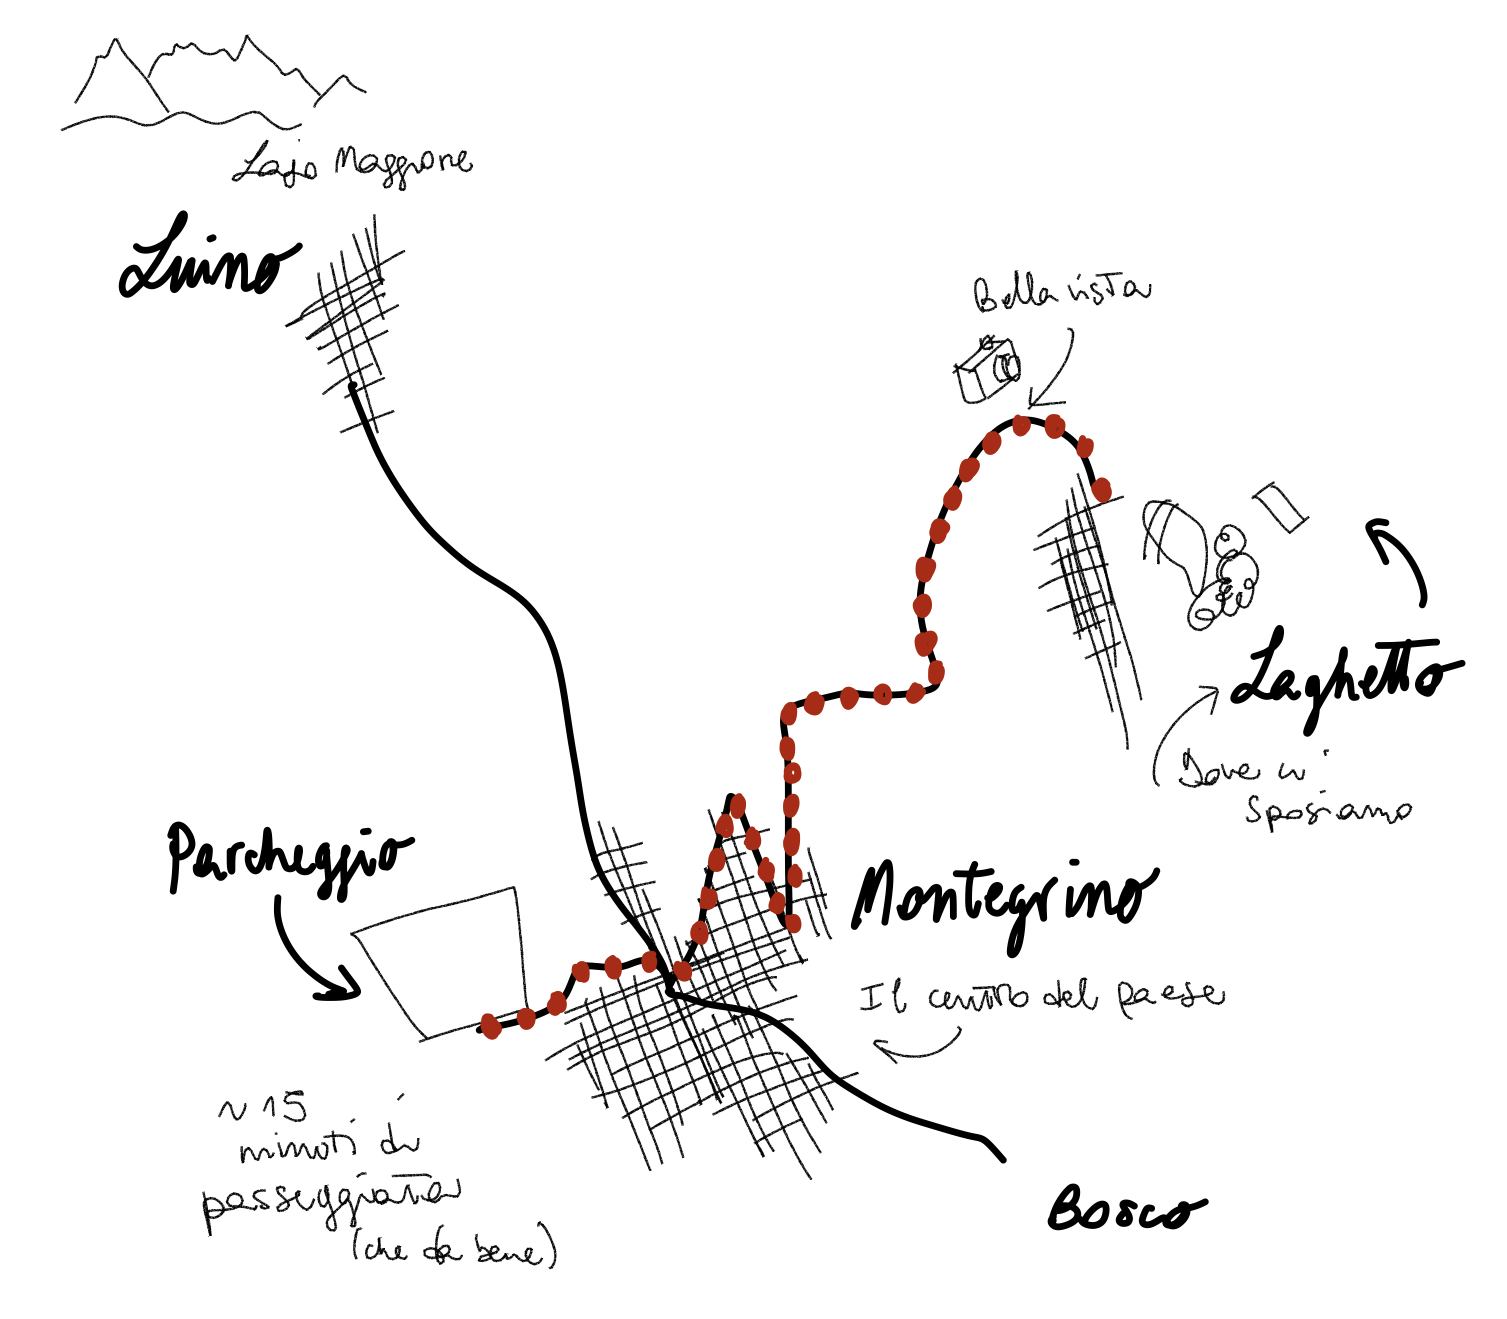 Lago Maggiore
Luino
Bella vista
Laghetto
Dove ci
sposiamo
Parcheggio
Montegrino
Il centro del paese
~ 15
minuti di
passeggiata
(che fa bene)
Bosco